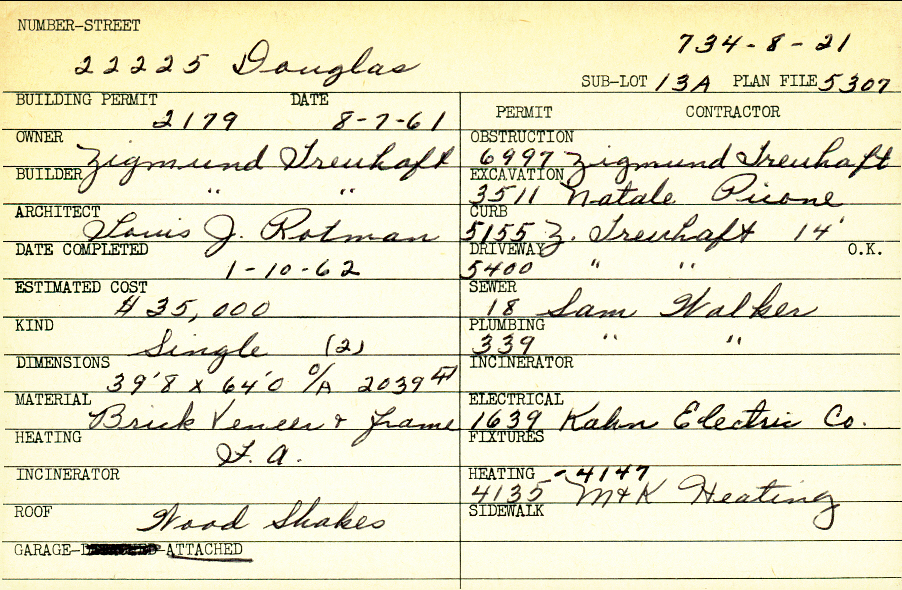 NUMBER-STREET
22225 Douglas
734-8-21
SUB-LOT 13A PLAN FILE 5307
BUILDING PERMIT DATE
2179 8-7-61
OWNER
Zigmund Treuhaft
BUILDER
" "
ARCHITECT
Louis J. Rotman
DATE COMPLETED
1-10-62
ESTIMATED COST
$35,000
KIND
Single (2)
DIMENSIONS
39'8 x 64'0 O/A 2039
MATERIAL
Brick Veneer & frame
HEATING
F. A.
INCINERATOR
ROOF
Wood Shakes
GARAGE- -ATTACHED
PERMIT CONTRACTOR
OBSTRUCTION
6997 Zigmund Treuhaft
EXCAVATION
3511 Natale Picone
CURB
5155 Z. Treuhaft 14'
DRIVEWAY O.K.
5400 " "
SEWER
18 Sam Walker
PLUMBING
339 " "
INCINERATOR
ELECTRICAL
1639 Kahn Electric Co.
FIXTURES
HEATING -4147
4135 M+K Heating
SIDEWALK